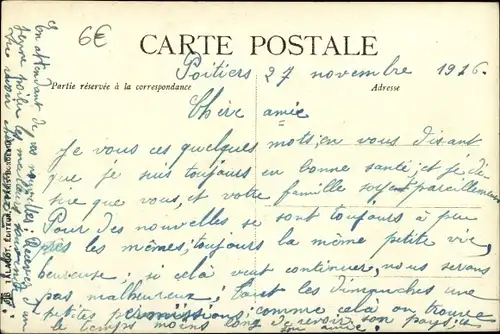 6€
CARTE POSTALE
Poitiers 27 novembre 1916.
Partie réservée à la correspondance
Adresse
Chère amie
Je vous ces quelques mots, en vous disant
que je suis toujours en bonne santé, et je dé-
sire que vous, et votre famille soyent pareillement
Pour des nouvelles se sont toujours à peu
près les mêmes, toujours la même petite vie,
heureuse; si celà veut continuer, nous serons
pas malheureux; tout les dimanches une
petites permissions; comme celà on trouve
le temps moins long de revoir son pays, et
son amie.
En attendant de vos nouvelles: Recevez d'un
jeune poilu les meilleurs